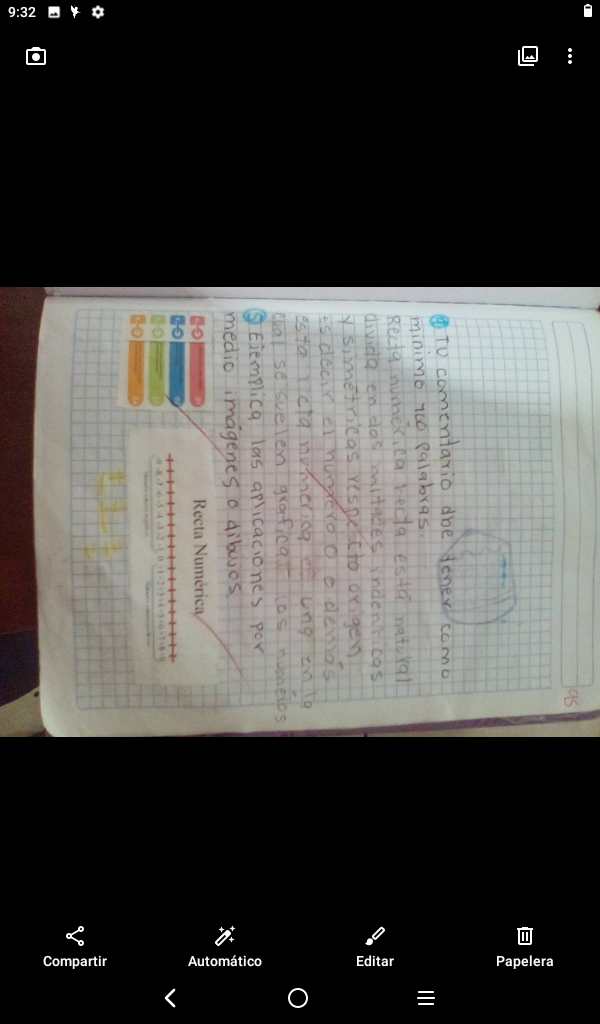 9:32
95
4 Tu comentario dbe tener como
minimo 400 palabras.
Recta numérica recta está natural
divida en dos mitades indenticos
y simétricas respecto origen
es decir el número 0 o demás
esta recta númerica es uno en la
cual se suelen graficar los numélos
5 Ejemplica las aplicaciones por
medio imágenes o dibujos
Recta Numérica
-9 -8 -7 -6 -5 -4 -3 -2 -1 0 1 2 3 4 5 6 7 8 9
Compartir
Automático
Editar
Papelera